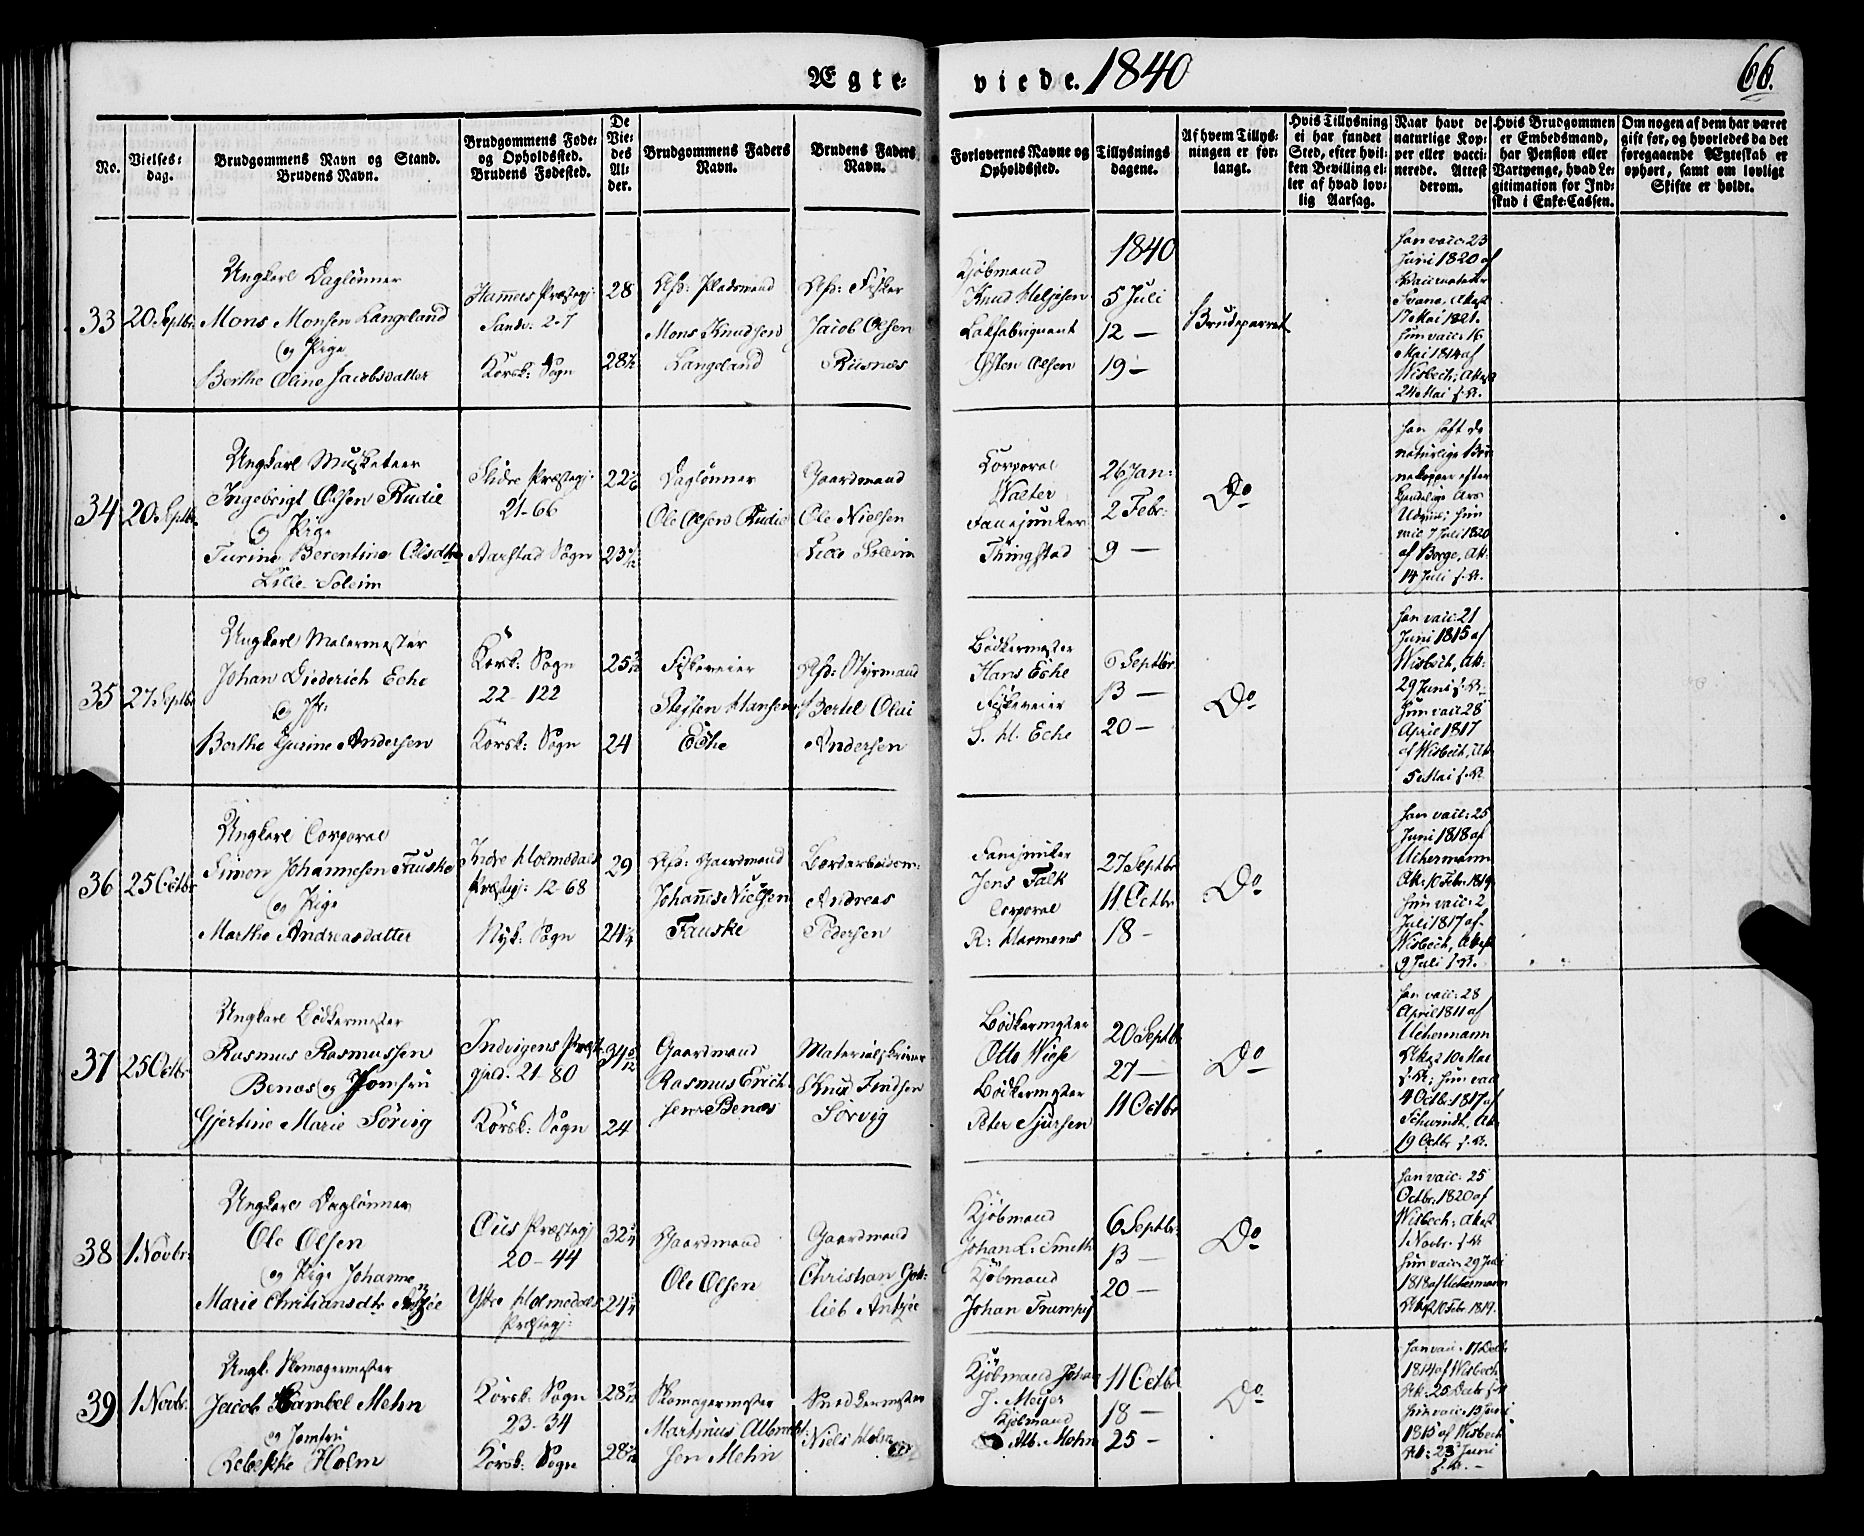 Ægte-
viede. 1840
66.
No.
Vielses-
dag.
Brudgommens Navn og Stand.
Brudens Navn.
Brudgommens Føde-
og Opholdssted.
Brudens Fødested.
De
Vie-
des
Al-
der.
Brudgommens Faders
Navn.
Brudens Faders
Navn.
Forlovernes Navne og
Opholdssted.
Tillysnings
dagene.
Af hvem Tillys-
ningen er for-
langt.
Hvis Tillysning
ei har fundet
Sted, efter hvil-
ken Bevilling el-
ler af hvad lov-
lig Aarsag.
Naar havt de
naturlige Kop-
per eller vacci-
nerede. Attest
derom.
Hvis Brudgommen
er Embedsmand,
har Pension eller
Vartpenge, hvad Le-
gitimation for Ind-
skud i Enke-Cassen.
Om nogen af dem har været
gift før, og hvorledes da det
foregaaende Ægteskab er
ophørt, samt om lovligt
Skifte er holdt.
33
20 Septbr
Ungkarl Daglønner
Mons Monsen Langeland
og Pige
Berthe Oline Jacobsdatter
Hammers Præstegj:
Kørsk: Sogn
28
Afd: Pladsmand
Mons Knudsen
Langeland
Afd: Fisker
Jacob Olsen
Kjøbmand
Knud Helgesen
Østen Olsen
1840
5 Juli
12 —
19 —
Brudeparret
han vacc: 23
Juni 1820 af
17 Mai 1821.
hun vacc: 16
Mai 1814 af
Wisbech; Attest
24 Mai s. A.
34
20 Septbr
Ungkarl Musketeer
Ingebrigt Olsen Rudie
og Pige
Turine Berentine Olsdtr
Lille Soleim
Slidre Præstegj:
21-66
Aarstad Sogn
Daglønner
Ole Olsen Rudie
Gaardmand
Ole Nielsen
Lille Soleim
Corporal
Walter
Fanejunker
Thingstad
26 Jan:
2 Febr:
9 —
Do
han haft de
naturlige Bør-
nekopper efter
14 Juli s. A.
35
27 Septbr
Ungkarl Malermester
Johan Diederich Eche
og P:
Berthe Gurine Andersen
Korsk: Sogn
22-122
Korsk: Sogn
24
Steffen Hansen
Eche
Afd: Styrmand
Bertel Olai
Andersen
Bødkermester
Hans Eche
S. H. Eche
6 Septbr
13 —
20 —
Do
han vacc: 21
Juni 1815 af
Wisbech, At:
29 Juni s. A.
hun vacc: 28
April 1817
af Wisbech, At:
5 Mai s. A.
36
25 Octbr
Ungkarl Corporal
Simon Johannesen Fauske
og Pige
Marthe Andreasdatter
Indre Holmedals
Præstegj: 12-68
Nyk: Sogn
29
Afd: Gaardmand
Johannes Nielsen
Fauske
Andreas
Pedersen
Fanejunker
Jens Falk
Corporal
R: Harmens
27 Septbr
11 Octbr
18 -
Do
han vacc: 25
Juni 1818 af
Uchermann
At: 10 Febr 1819
hun vacc: 2
Juli 1817 af
Wisbech, Attest
9 Juli s. A.
37
25 Octbr
Ungkarl Bødkermester
Rasmus Rasmussen
Benæs og Jomfru
Gjertine Marie Sørvig
Indvigens Præste-
gjeld. 21-80
Korsk: Sogn
34 5/12
24
Gaardmand
Rasmus Erich-
sen Benæs
Materialskriver
Knud Findsen
Sørvig
Bødkermester
Otto Wiese
Bødkermester
Peter Sjursen
20 Septbr
27 —
11 Octbr
Do
han vacc: 28
April 1811 af
Uchermann
Attest 10 Mai
s. A; hun vacc
4 Octbr: 1817 af
Schwindt, At:
19 Octbr s. A.
38
1 Novbr:
Ungkarl Daglønner
Ole Olsen
og Pige Johanne
Marie Christiansdtr Antzée
Præstegj
20-44
Ytre Holmedals
Præstegj:
32 1/4
24 1/4
Gaardmand
Ole Olsen
Gaardmand
Christian Got-
lieb Antzée
Kjøbmand
Johan L: Smith
Kjøbmand
Johan Trumpy
6 Septbr:
13 —
20 —
Do
han vacc: 25
Octbr: 1820 af
Wisbech; Attest
1 Novbr. s. A
hun vacc: 29 Juli
1818 af Uchermann
Attest 10 Febr 1819.
39
1 Novbr.
Ungk. Skomagermester
Jacob Mehn
og Jomfru
Rebekke Holm
Korsk: Sogn
23-34
Korsk: Sogn
Skomagermester
Martinus Albrecht-
sen Mehn
Snedkermester
Niels Holm
Kjøbmand Johan
J. Meyer
Kjøbmand
Alb. Mehn
11 Octbr
18 —
25 -
Do
1814 af Wisbech
hun vacc: 13 Juni
1815 af Wisbech
At: 23 Juni
s. A. -